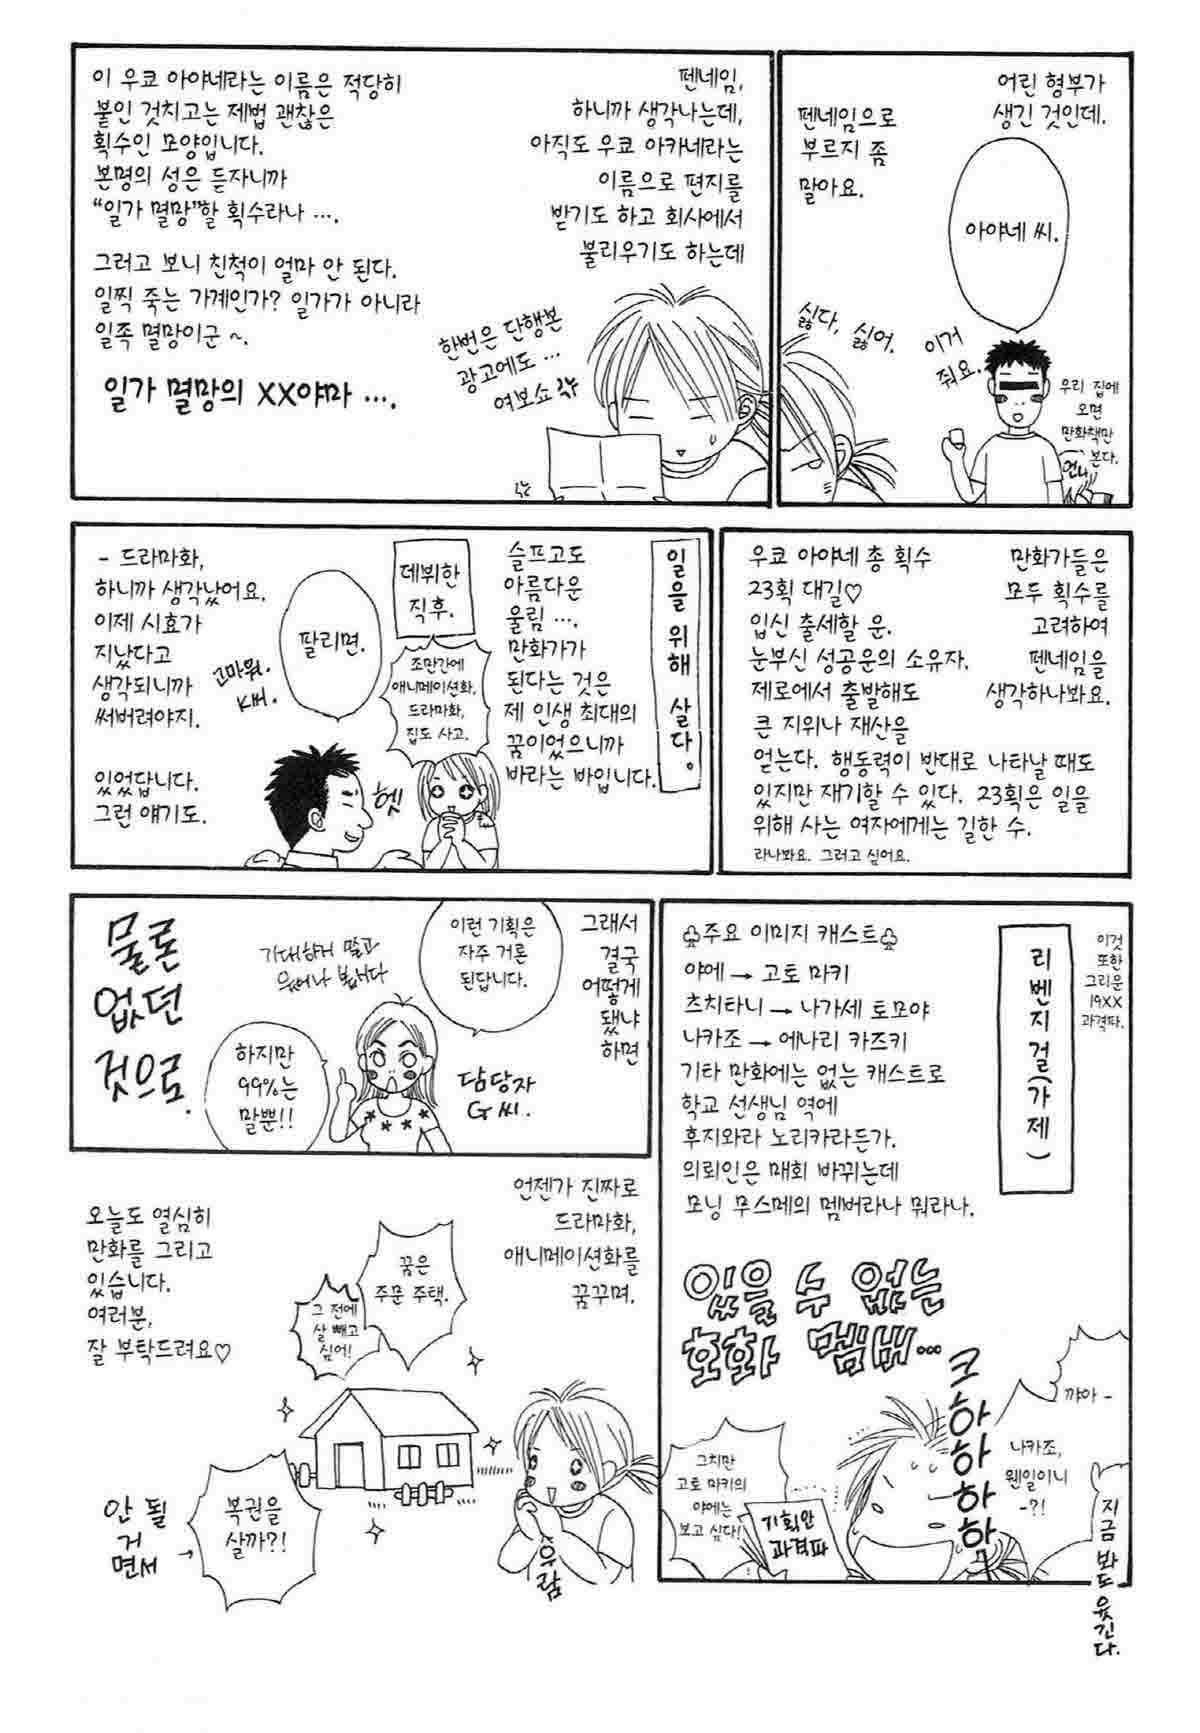 어린 형부가
생긴 것인데.
펜네임으로
부르지 좀
말아요.
아야네 씨.
싫다, 싫어.
이거
줘요.
우리 집에
오면
만화책만
본다.
언니
펜네임,
하니까 생각나는데,
아직도 우쿄 아카네라는
이름으로 편지를
받기도 하고 회사에서
불리우기도 하는데
한번은 단행본
광고에도 …
여보쇼
이 우쿄 아야네라는 이름은 적당히
붙인 것치고는 제법 괜찮은
획수인 모양입니다.
본명의 성은 듣자니까
“일가 멸망”할 획수라나 ….
그러고 보니 친척이 얼마 안 된다.
일찍 죽는 가계인가? 일가가 아니라
일족 멸망이군 ~.
일가 멸망의 XX야마 ….
만화가들은
모두 획수를
고려하여
펜네임을
생각하나봐요.
우쿄 아야네 총 획수
23획 대길♡
입신 출세할 운.
눈부신 성공운의 소유자.
제로에서 출발해도
큰 지위나 재산을
얻는다. 행동력이 반대로 나타날 때도
있지만 재기할 수 있다. 23획은 일을
위해 사는 여자에게는 길한 수.
라나봐요. 그러고 싶어요.
일을 위해 살다.
슬프고도
아름다운
울림 ….
만화가가
된다는 것은
제 인생 최대의
꿈이었으니까
바라는 바입니다.
데뷔한
직후.
조만간에
애니메이션화,
드라마화,
집도 사고.
팔리면.
고마워.
K씨.
헷
- 드라마화,
하니까 생각났어요.
이제 시효가
지났다고
생각되니까
써버려야지.
있었답니다.
그런 얘기도.
이것
또한
그리운
19XX
과격파.
리벤지 걸(가제)
♧주요 이미지 캐스트♧
야에 → 고토 마키
츠치타니 → 나가세 토모야
나카조 → 에나리 카즈키
기타 만화에는 없는 캐스트로
학교 선생님 역에
후지와라 노리카라든가.
의뢰인은 매회 바뀌는데
모닝 무스메의 멤버라나 뭐라나.
있을 수 없는
호화 멤버…
크하하하하
꺄아-
나카조,
웬일이니
-?!
그치만
고토 마키의
야에는
보고 싶다!
기획안
과격파
지금 봐도 웃긴다.
그래서
결국
어떻게
됐냐
하면
이런 기획은
자주 거론
된답니다.
기대하지 말고
담당자
G씨.
하지만
99%는
말뿐!!
물론
없던
것으로.
언젠가 진짜로
드라마화,
애니메이션화를
꿈꾸며.
꿈은
주문 주택.
그 전에
살 빼고
싶어!
오늘도 열심히
만화를 그리고
있습니다.
여러분,
잘 부탁드려요♡
복권을
살까?!
안 될
거
면서